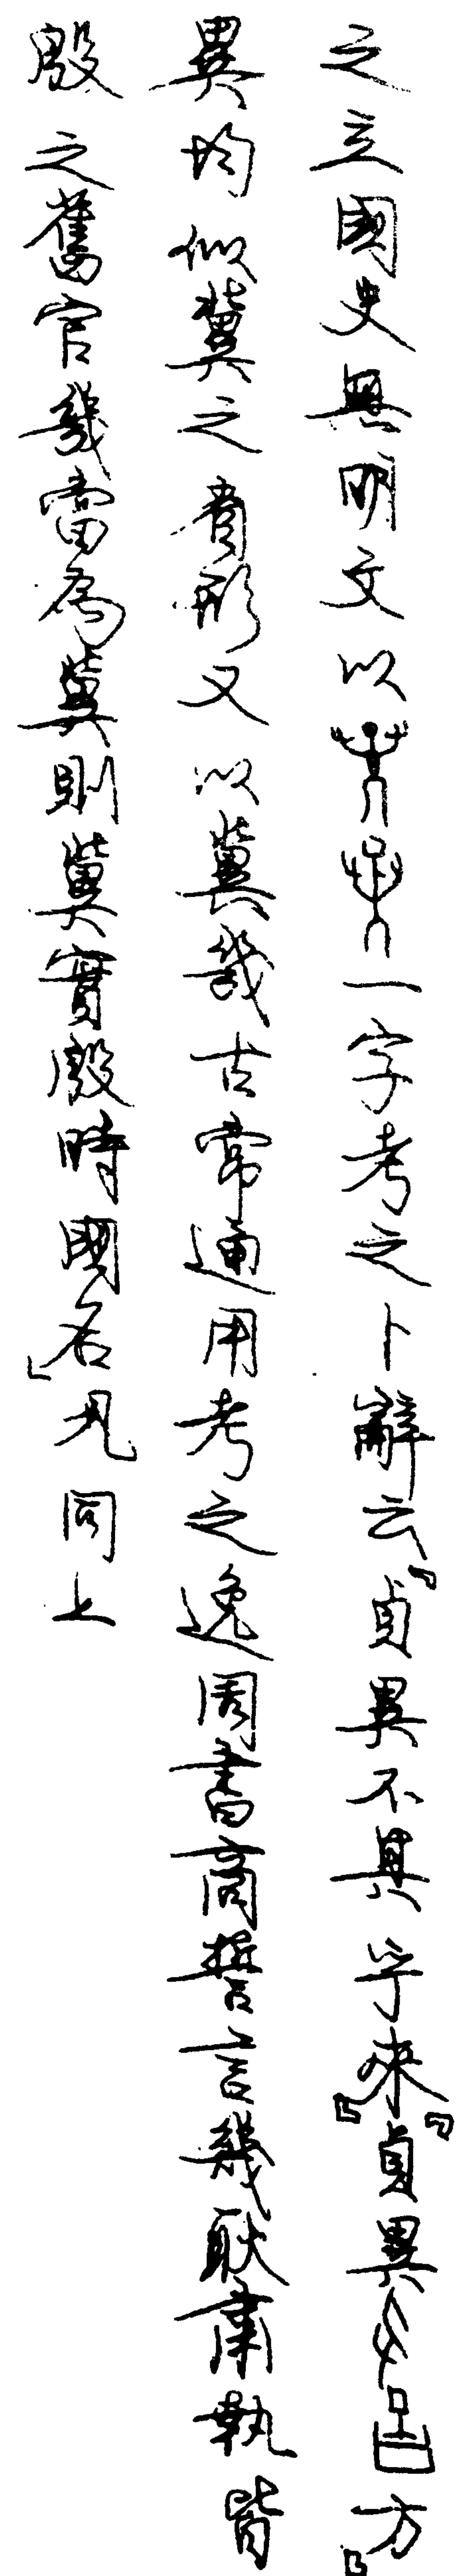 之立國史無明文以一字考之卜辭云『貞異不其乎來』『貞異方』
異均似冀之省形又以冀幾古常通用考之逸周書商誓言幾耿肅執皆
殷之舊官幾當為冀則冀實殷時國名」凡同上